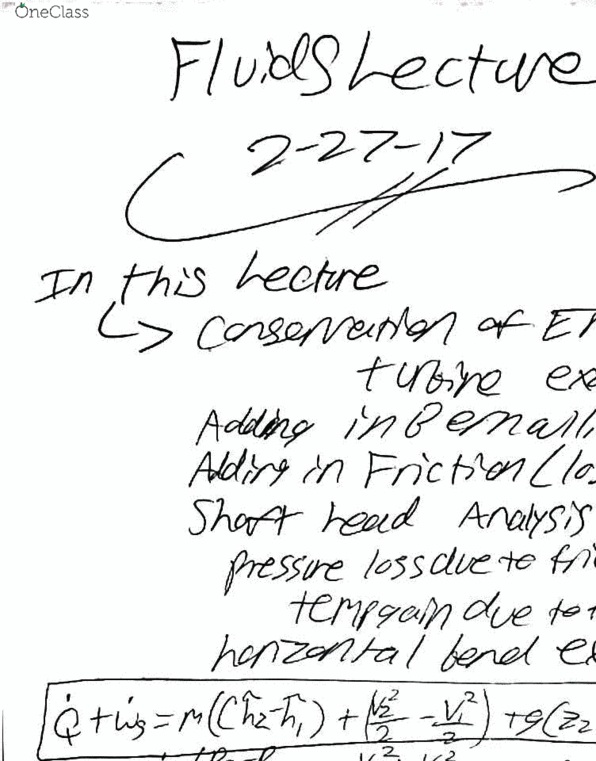 OneClass
Fluids Lecture
2-27-17
In this Lecture
↳ Conservation of E
turbine ex
Adding in Bernoulli
Adding in Friction (los
Shaft head Analysis
pressure loss due to fri
temp gain due to
horizontal bend ex
Q̇ + ẇs = m(Ch̃2-h̃1) + (V2²/2 - V1²/2) + g(z2